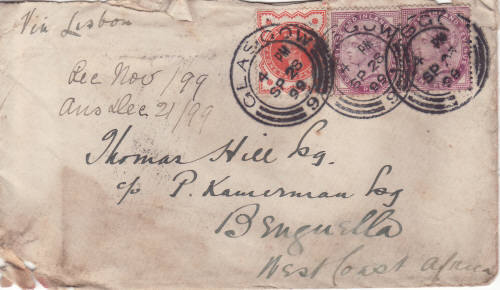 Via Lisbon
GLASGOW
4 PM
SP 28
99
GLASGOW
4 PM
SP 28
99
4 PM
SP 28
99
Rec Nov/99
Ans Dec 21/99
Thomas Hill Esq.
c/o P. Kamerman Esq
Benguella
West Coast Africa